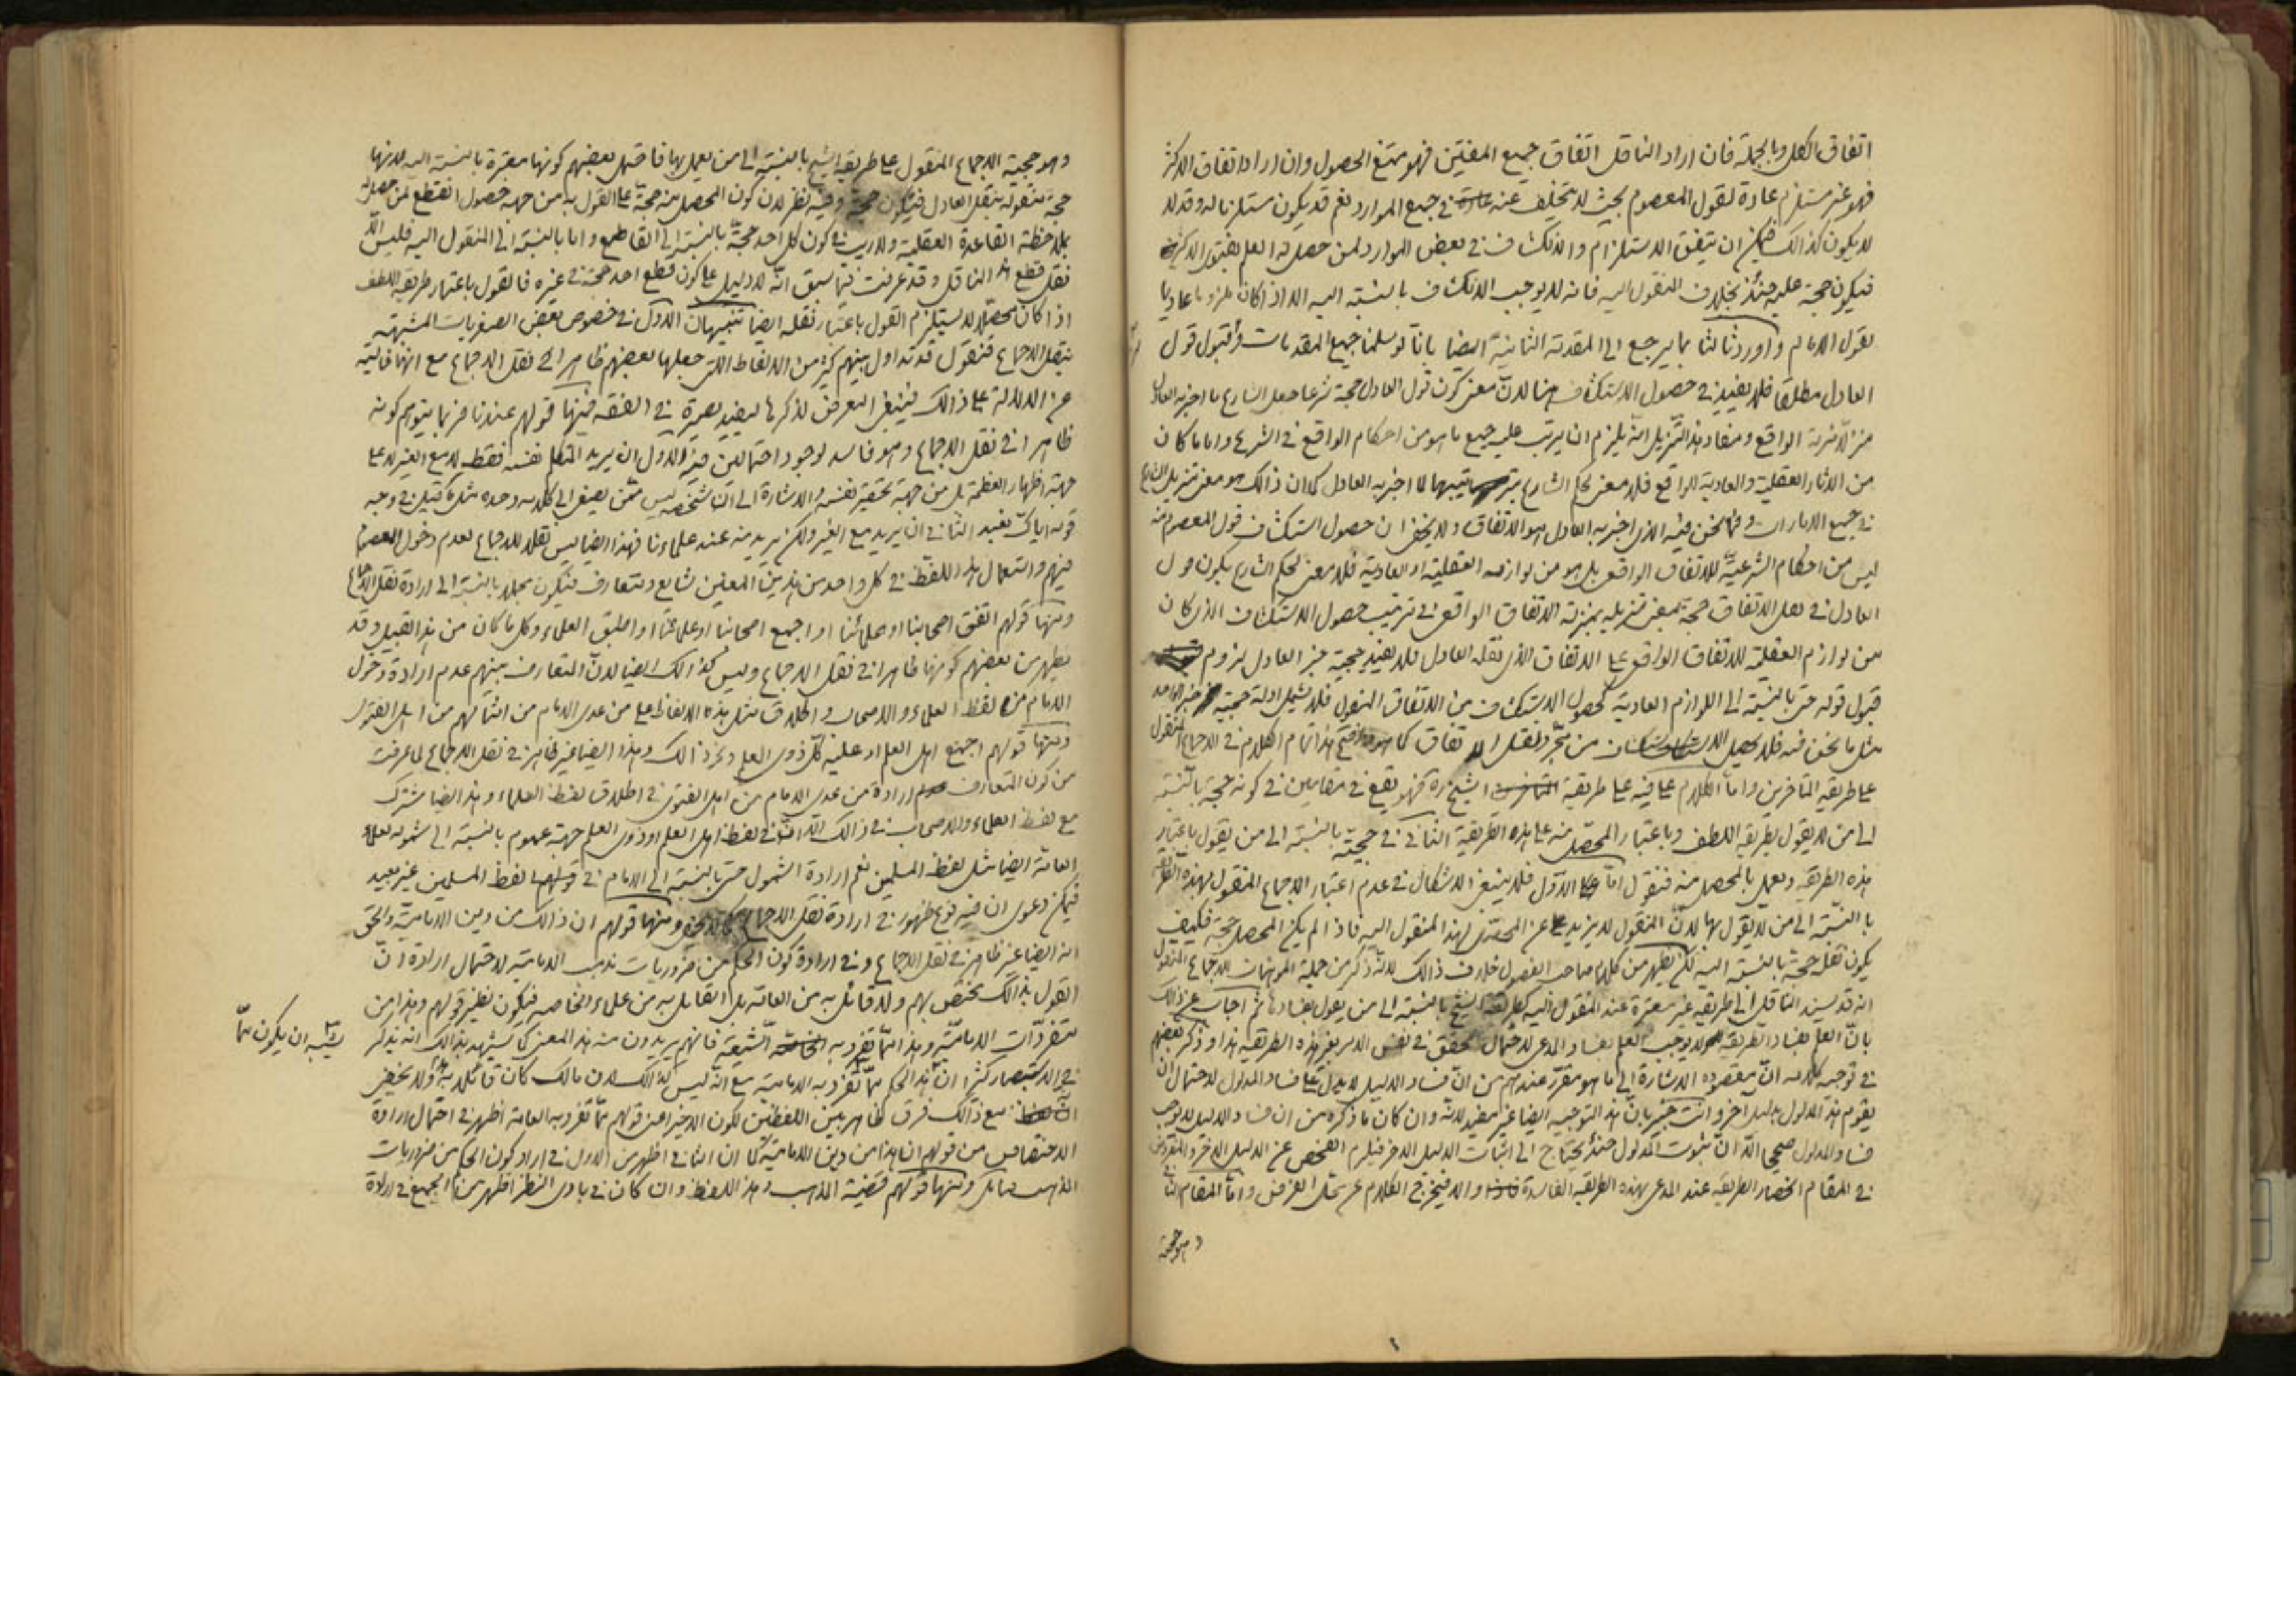 اتفاق الكل وبالجملة فان اراد الناقل اتفاق جميع المفتين فهو ممتنع الحصول وان اراد اتفاق الاكثر
فهو غير مستلزم عادة لقول المعصوم بحيث لا يتخلف عنه في جميع الموارد نعم قد يكون مستلزما له وقد لا
لا يكون كذالك فيمكن ان يتفق الاستلزام والانكشاف في بعض الموارد لمن حصل له العلم بفتوى الاكثر
فيكون حجة عليه حينئذ بخلاف المنقول اليه فانه لا يوجب الانكشاف بالنسبة اليه الا اذا كان ملزوما عاديا
لقول الامام واورد ثالثا بما يرجع الى المقدمة الثانية ايضا بانا لو سلمنا جميع المقدمات وقبول قول
العادل مطلقا فلا يفيد في حصول الاستكشاف هنا لان معنى كون قول العادل حجة شرعا جعل الشارع ما اخبر به العادل
منزلة الواقع ومفاد هذا التنزيل انه يلزم ان يرتب عليه جميع ما هو من احكام الواقع في الشرع واما ما كان
من الاثار العقلية والعادية للواقع فلا معنى لحكم الشارع بترتيبها لما اخبر به العادل كما ان ذالك هو معنى تنزيل الشارع
في جميع الامارات وفيما نحن فيه الذي اخبر به العادل هو الاتفاق ولا يخفى ان حصول استكشاف قول المعصوم منه
ليس من احكام الشرعية للاتفاق الواقع بل هو من لوازمه العقلية او العادية فلا معنى لحكم الشارع بكون قول
العادل في نقل الاتفاق حجة بمعنى تنزيله بمنزلة الاتفاق الواقع في ترتيب حصول الاستكشاف الذي كان
من لوازم العقلية للاتفاق الواقع على الاتفاق الذي نقله العادل فلا يفيد حجية خبر العادل لزوم
قبول قوله حتى بالنسبة الى اللوازم العادية كحصول الاستكشاف من الاتفاق المنقول فلا يشمل ادلة حجية خبر الواحد
مثل ما نحن فيه فلا يحصل الاستكشاف من مجرد نقل الاتفاق كما هو واضح هذا تمام الكلام في الاجماع المنقول
على طريقة المتاخرين واما الكلام على فيه على طريقة الشيخ ره فهو يقع في مقامين في كونه حجة بالنسبة
الى من لا يقول بطريقة اللطف وباعتبار المحصل منه على هذه الطريقة الثاني في حجيته بالنسبة الى من يقول باعتبار
هذه الطريقة ويعمل بالمحصل منه فنقول اما الاول فلا ينبغي الاشكال في عدم اعتبار الاجماع المنقول بهذه الطريقة
بالنسبة الى من لا يقول بها لان المنقول لا يزيد عن المحصل لهذا المنقول اليه فاذا لم يكن المحصل حجة فكيف
يكون نقله حجة بالنسبة اليه لكن يظهر من كلام صاحب الفصول خلاف ذالك لانه ذكر من جملة الموهنات للاجماع المنقول
انه قد يسند الناقل الى طريقة غير معتبرة عند المنقول اليه كطريقة الشيخ بالنسبة الى من يقول بفسادها ثم اجاب عن ذالك
بان العلم بفساد الطريقة لا يوجب العلم بفساد المدعى لاحتمال تحقق في نفس الامر بغير هذه الطريقة هذا وذكر بعضهم
في توجيه كلامه ان مقصوده الاشارة الى ما هو مقرر عندهم من ان فساد الدليل لا يدل على فساد المدلول لاحتمال ان
يقوم هذا المدلول بدليل اخر وانت خبير بان هذا التوجيه ايضا غير مفيد لانه وان كان ما ذكره من ان فساد الدليل لا يوجب
فساد المدلول صحيحا الا ان ثبوت المدلول حينئذ يحتاج الى اثبات الدليل الاخر فيلزم الفحص عن الدليل الاخر والمفروض
في المقام انحصار الطريقة عند المدعي بهذه الطريقة الفاسدة والا فيخرج الكلام عن محل الفرض واما المقام الثاني
وهو حجية
وهو حجية الاجماع المنقول على طريقة الشيخ بالنسبة الى من يعمل بها فاحتمل بعضهم كونها معتبرة بالنسبة اليه لانها
حجة منقولة بنقل العادل فيكون حجة وفيه نظر لان كون المحصل منه حجة على القول به من جهة حصول القطع لمن حصله
بملاحظة القاعدة العقلية ولا ريب في كون كل احد حجة بالنسبة الى القاطع واما بالنسبة الى المنقول اليه فليس الا
نقل قطع الناقل وقد عرفت فيما سبق انه لا دليل على كون قطع احد حجة في غيره فالقول باعتبار طريقة اللطف
اذا كان محصلا لا يستلزم القول باعتبار نقله ايضا تنبيهان الاول في خصوص بعض الصغريات المشتبهة
بنقل الاجماع فنقول قد تداول بينهم كثير من الالفاظ التي جعلها بعضهم ظاهرا في نقل الاجماع مع انها خالية
عن الدلالة على ذالك فينبغي التعرض لذكرها ليفيد بصيرة في الفقه فمنها قولهم عندنا فربما يتوهم كونه
ظاهرا في نقل الاجماع وهو فاسد لوجود احتمالين فيه الاول ان يريد المتكلم نفسه فقط لا مع الغير لا على
جهة اظهار العظمة بل من جهة تحقير نفسه والاشارة الى ان شخصه ليس ممن يصغى الى كلامه وحده مثل ما قيل في وجه
قوله اياك نعبد الثاني ان يريد مع الغير ولكن يريد منه عند علماءنا فهذا ايضا ليس نقلا للاجماع لعدم دخول المعصوم
فيهم واستعمال هذا اللفظ في كل واحد من هذين المعنيين شايع ومتعارف فيكون مجملا بالنسبة الى ارادة نقل الاجماع
ومنها قولهم اتفق اصحابنا او علمائنا او اجمع اصحابنا او علمائنا او اطبق العلماء وكل ما كان من هذا القبيل وقد
يظهر من بعضهم كونها ظاهرا في نقل الاجماع وليس كذالك ايضا لان المتعارف بينهم عدم ارادة دخول
الامام من لفظ العلماء والاصحاب واطلاق مثل هذه الالفاظ على من عدى الامام من امثالهم من اهل الفتوى
ومنها قولهم اجمع اهل العلم او عليه كل ذوي العلم ونحو ذالك وهذا ايضا غير ظاهر في نقل الاجماع لما عرفت
من كون المتعارف ارادة من عدى الامام من اهل الفتوى في اطلاق لفظ العلماء وهذا ايضا مشترك
مع لفظ العلماء والاصحاب في ذالك الا ان في لفظ اهل العلم او ذوي العلم جهة عموم بالنسبة الى شموله لعلماء
العامة ايضا مثل لفظ المسلمين نعم ارادة الشمول حتى بالنسبة الى الامام في قولهم لفظ المسلمين غير بعيد
فيمكن دعوى ان فيه نوع ظهور في ارادة نقل الاجماع كما لا يخفى ومنها قولهم ان ذالك من دين الامامية والحق
انه ايضا غير ظاهر في نقل الاجماع وفي ارادة كون الحكم من ضروريات مذهب الامامية لاحتمال ارادة ان
القول بذالك مختص بهم ولا قائل به من العامة بل القائل به من علماء الخاصة فيكون نظير قولهم وهذا من
متفردات الامامية وهذا مما تفرد به الشيعة فانهم يريدون منه هذا المعنى كما يشهد بذالك انه يذكر
في الاستبصار كثيرا ان هذا الحكم مما تفرد به الامامية مع انه ليس كذالك لان مالك كان قائلا به ولا يخفى
يشبه ان يكون مما
ان مع ذالك فرق ظاهر بين اللفظين لكون الاخير اعني قولهم مما تفرد به العامة اظهر في احتمال ارادة
الاختصاص من قولهم ان هذا من دين الامامية كما ان الثاني اظهر من الاول في ارادة كون الحكم من ضروريات
المذهب ومنها قولهم قضية المذهب وهذا اللفظ وان كان في بادي النظر اظهر من الجميع في ارادة